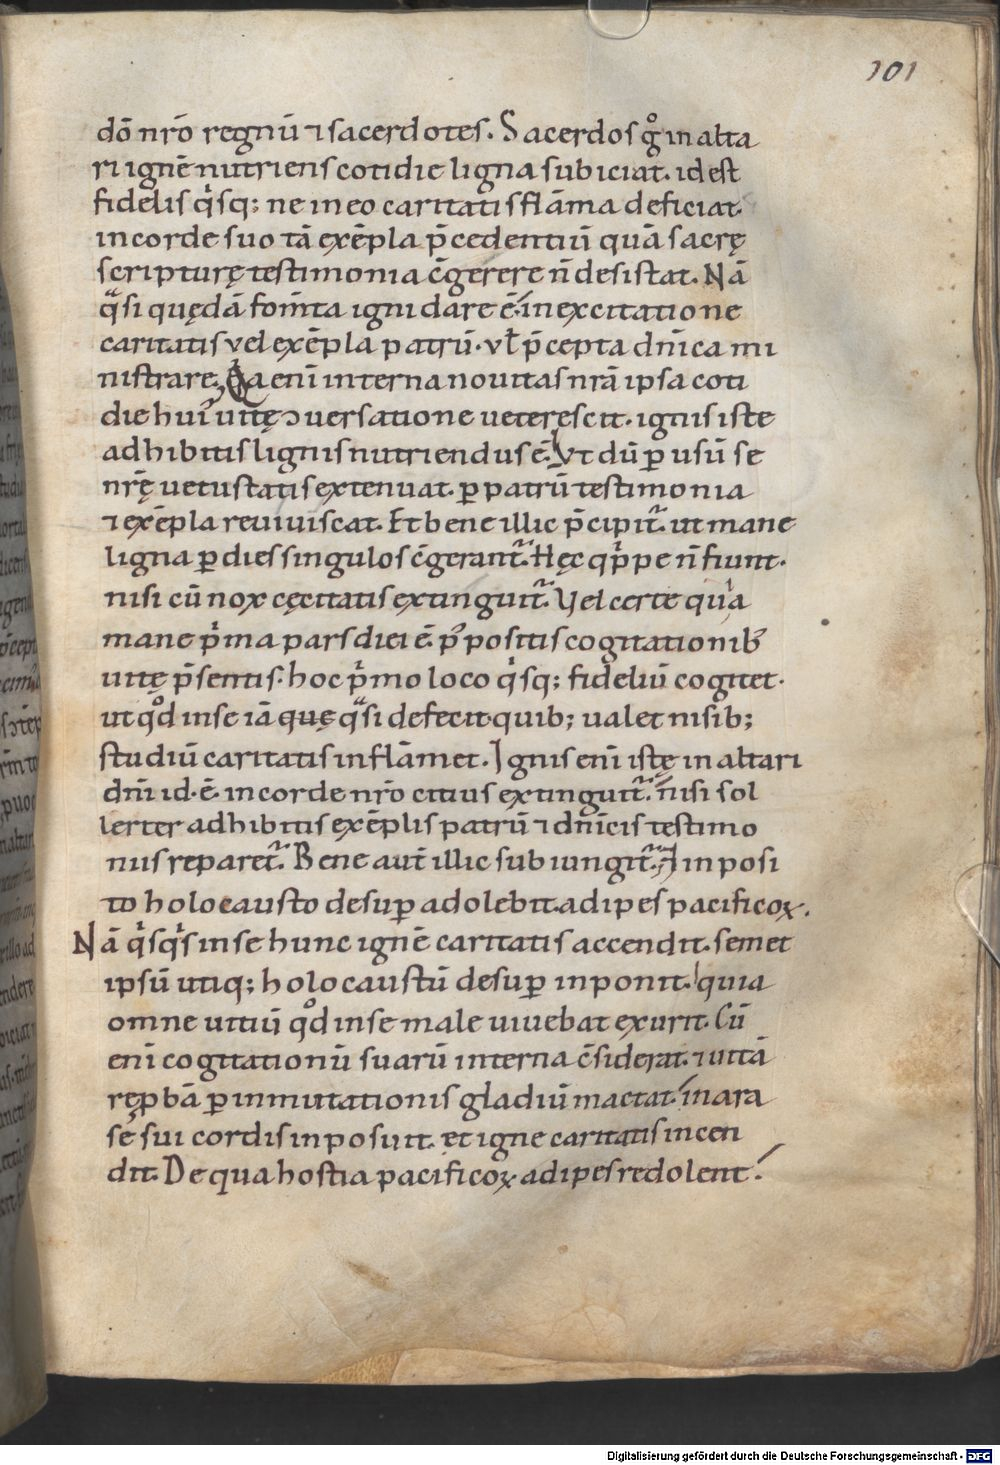 101
dō nrō regnū ⁊ sacerdotes. Sacerdos gͦ in alta
ri ignē nutriens cotidie ligna subiciat. id est
fidelis qͥsq; ne in eo caritatis flāma deficiat.
in corde suo tā exēpla p̄cedentiū quā sacrę
scripturę testimonia c̄gerere n̄ desistat. Nā
qͣsi quędā fom̄ta igni dare ē. in excitatione
caritatis vel exēpla patrū. vł p̄cepta dn̄ica mi
nistrare. Qͥa enī interna nouitas nrā ipsa coti
die huiꝰ uitę ↄuersatione veterescit. ignis iste
adhibitis lignis nutriendus ē. Vt dū ꝑ usū se
nrę̄ uetustatis extenuat. ꝑ patrū testimonia
⁊ exēpla reuiuiscat. Et bene illic p̄cipit᷑. ut mane
ligna ꝑ dies singulos c̄gerant᷑. Hęc qͥppe n̄ fiunt.
nisi cū nox cęcitatis extinguit᷑. Vel certe quͥa
mane pͥma pars diei ē. p̾ positis cogitationib̾
uitę p̄sentis. hoc pͥmo loco qͥsq; fideliū cogitet.
ut qͦd in se iā quę qͣsi defecit. quib; ualet nisib;
studiū caritatis inflāmet. Ignis enī istę in altari
dn̄i id. ē. in corde nrō citius extinguit᷑. nisi sol
lerter adhibitis exēplis patrū ⁊ dn̄icis testimo
niis reparet᷑. Bene aut̄ illic subiungit᷑. Inposi
to holocausto desuꝑ adolebit. adipes pacificoꝝ.
Nā qͥsqͥs in se hunc ignē caritatis accendit. semet
ipsū utiq; holocaustū desuꝑ inponit. quia
omne uitiū qͦd in se male uiuebat exurit. Cū
enī cogitationū suarū interna c̄siderat. ⁊ uitā
ręp̄bā ꝑ inmutationis gladiū mactat. in ara
se sui cordis inposuit. et igne caritatis incen
dit. De qua hostia pacificoꝝ adipes redolent.
Digitalisierung gefördert durch die Deutsche Forschungsgemeinschaft - DFG